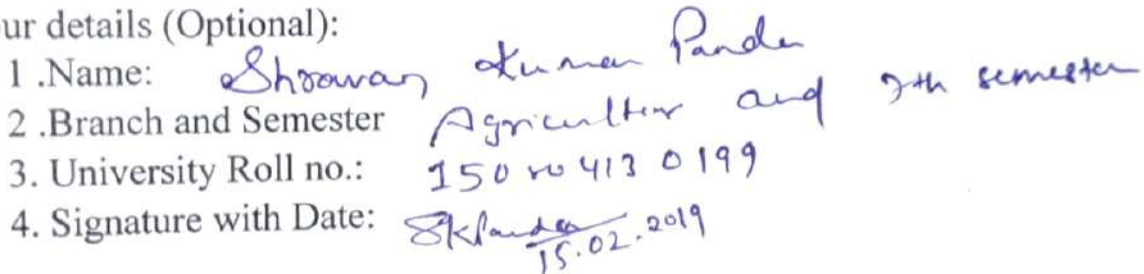 ur details (Optional):
1 .Name: Shrawan Kumar Pande
2 .Branch and Semester Agricultter and 7th semester
3. University Roll no.:
4. Signature with Date: SkPande 15.02.2019